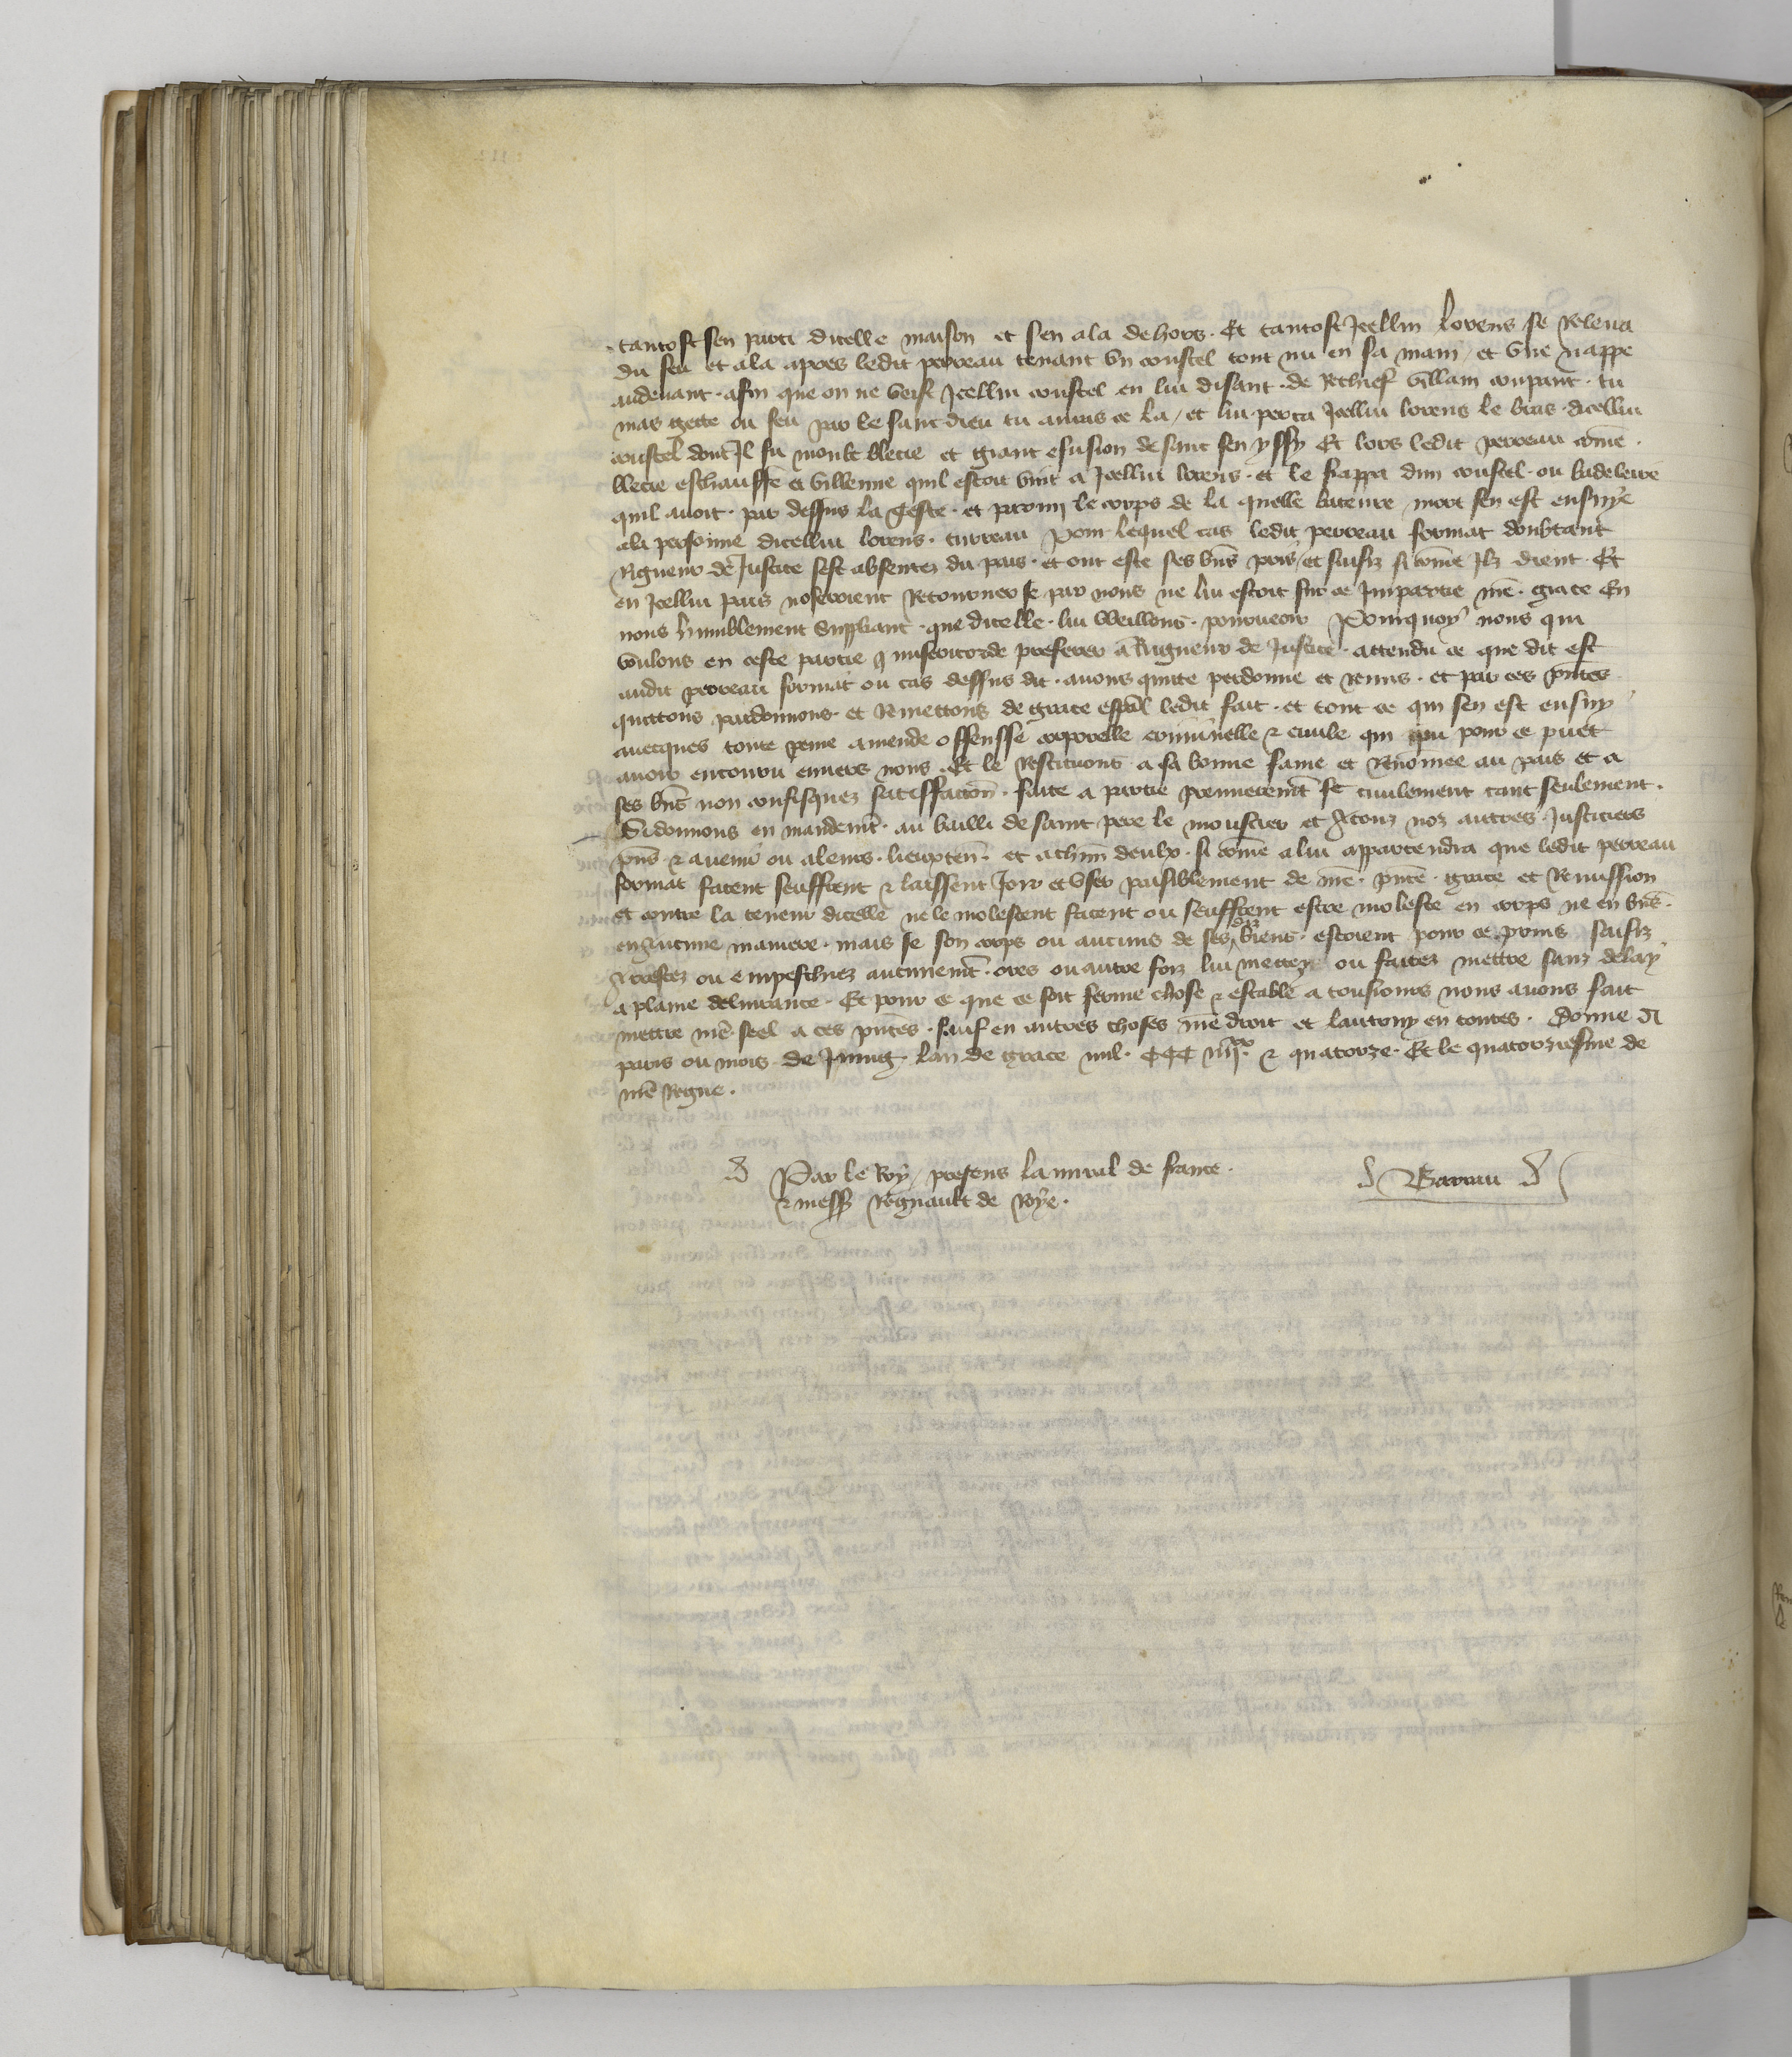 tantost sen parti dicelle maison et sen ala dehors. Et tantost Icellui lorens se Releva
du feu et ala apres ledit perreau tenant un coustel tout nu en sa main / et une nappe
audevant. afin que on ne veist Icellui coustel en lui disant. de Rechief villain coupaut. tu
mas gette ou feu par le sanc dieu tu auras ce la / et lui perca Icellui lorens le bras. dicellui
coustel dont Il fu moult blecie et grant efusion de sanc sen yssy Et lors ledit perreau cōme.
blecie eschauffe et villenne quil estoit vint a Icellui lorens. et le frappa dun coustel. ou badelaire
quil avoit. par dessus la teste. et parmi le corps de la quelle bateure mort sen est ensuye
ala personne dicellui lorens. turreau Pour lequel cas ledit perreau format doubtant
Rigueur de Justice sest absentez du pais. et ont este ses bn̄s pris et saisiz si cōme Ilz dient. Et
en Icellui pais noseroient Retourner se par nous ne lui estoit sur ce Impartie nr̄e. grace En
nous humblement Suppliant. que dicelle. lui weillons. pourveoir Pourquoy nous qui
voulons en ceste partie misericorde preferer a Rigueur de Justice. attendu ce que dit est
audit perreau format ou cas dessus dit. avons quitte perdonne et Remis. et par ces pn̄tes
quittons pardonnons. et Remettons de grace esp̄al ledit fait. et tout ce qui sen est ensuy
avecques toute peine amende offensse corporelle criminelle & civile qui pour ce puet
avoir encouru envers nous. Et le Restituons a sa bonne fame et Renōmee au pais et a
ses bn̄s non confisquez satisfaction. faite a partie premieremt̄ se civilement tant seulement.
Si donnons en mandemt̄. au bailli de saint pere le moustier et A touz noz autres Justiciers
pn̄s & avenir ou a leurs. lieuxten̄. et a chūn deulx. si cōme a lui appartendra que ledit perreau
format facent seuffrent & laissent Joir et user paisiblement de nr̄e. pn̄te. grace et Remission
et contre la teneur dicelle ne le molestent facent ou seuffrent estre moleste en corps ne en bn̄s.
en aucune maniere. mais se son corps ou aucuns de ses diz biens. estoient pour ce prins saisiz
Arrestez ou empeschiez aucunemt̄. ores ou autre foiz lui mettez ou faites mettre sanz delay
a plaine delivrance. Et pour ce que ce soit ferme chose & estable a tousiours nous avons fait
mettre nr̄e seel a ces pn̄tes. sauf en autres choses nr̄e droit et lautruy en toutes. Donne A
paris ou mois de Juing. lan de grace mil. CCC iiii.xx & quatorze. Et le quatorziesme de
nr̄e Regne.
Par le Roy / presens lamiral de france.
& mess Regnault de Roye.
Barrau